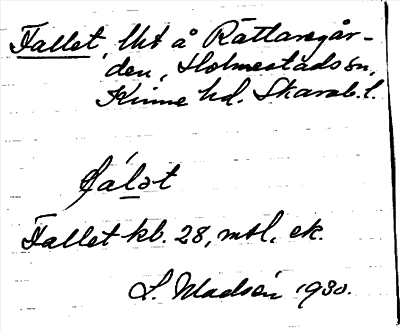 Fallet, lht å Rättaregår-
den, Holmestads sn,
Kinne hd. Skarab. l.
fálət
Fallet kb. 28, mtl, ek.
L. Madsén 1930.